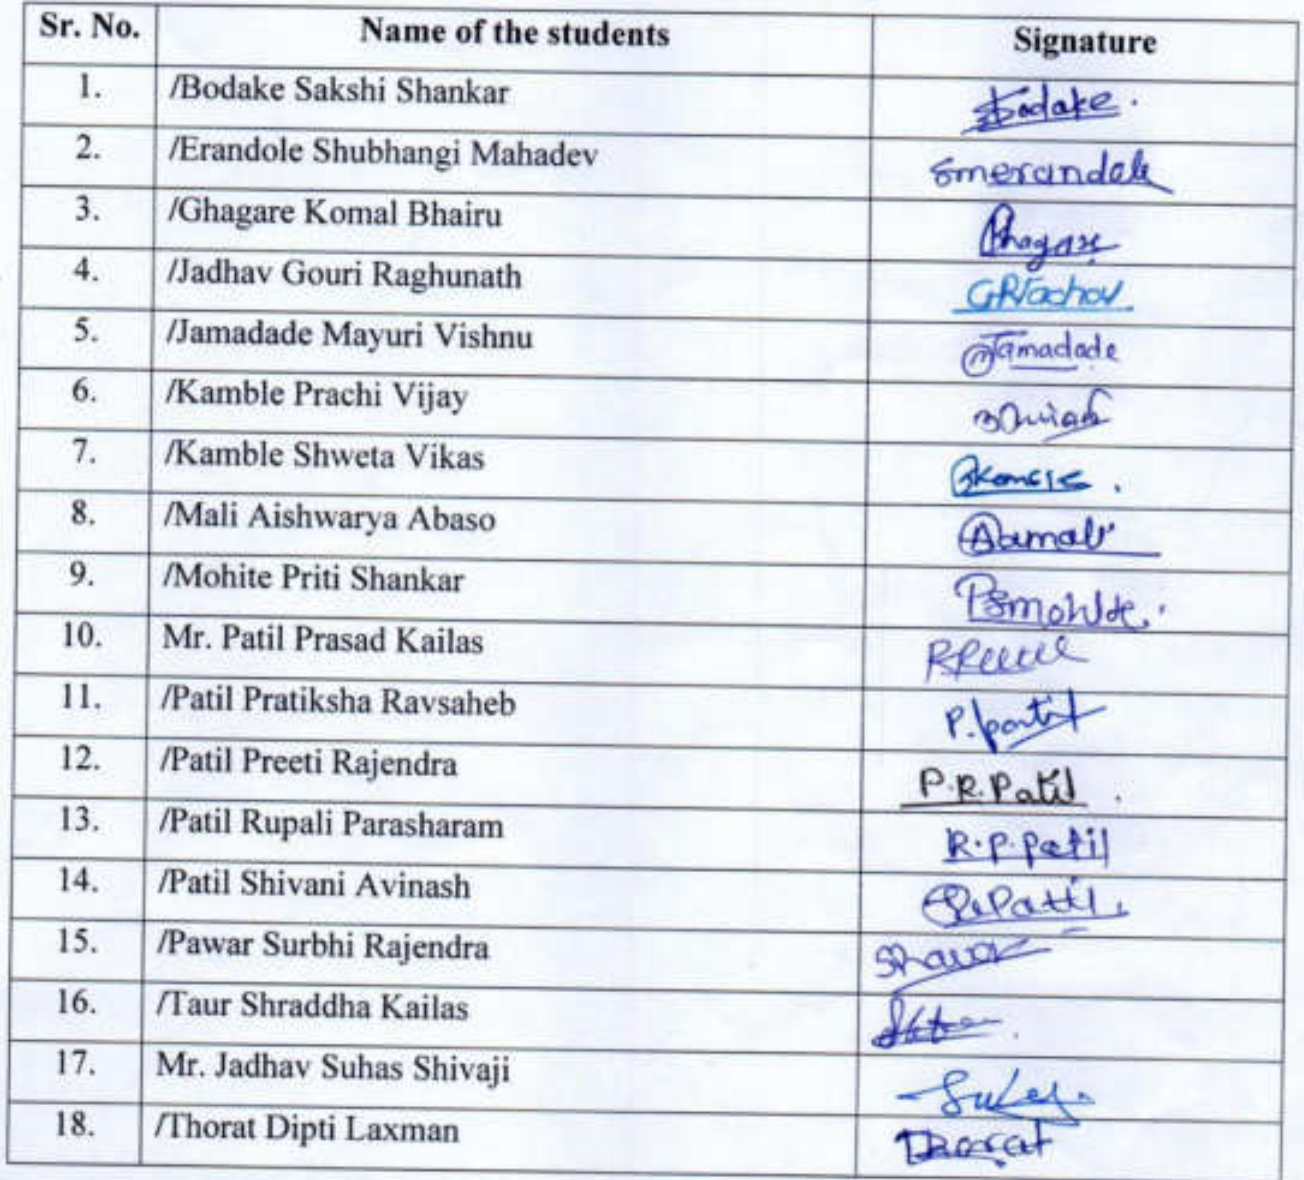 Sr. No. Name of the students Signature
1. /Bodake Sakshi Shankar Bodake.
2. /Erandole Shubhangi Mahadev Smerandole
3. /Ghagare Komal Bhairu Ghagare
4. /Jadhav Gouri Raghunath GRJadhav
5. /Jamadade Mayuri Vishnu mJamadade
6. /Kamble Prachi Vijay
7. /Kamble Shweta Vikas
8. /Mali Aishwarya Abaso Aamali
9. /Mohite Priti Shankar PSmohite.
10. Mr. Patil Prasad Kailas
11. /Patil Pratiksha Ravsaheb P.patil
12. /Patil Preeti Rajendra P.R.Patil .
13. /Patil Rupali Parasharam R.P.patil
14. /Patil Shivani Avinash
15. /Pawar Surbhi Rajendra
16. /Taur Shraddha Kailas
17. Mr. Jadhav Suhas Shivaji
18. /Thorat Dipti Laxman Thorat